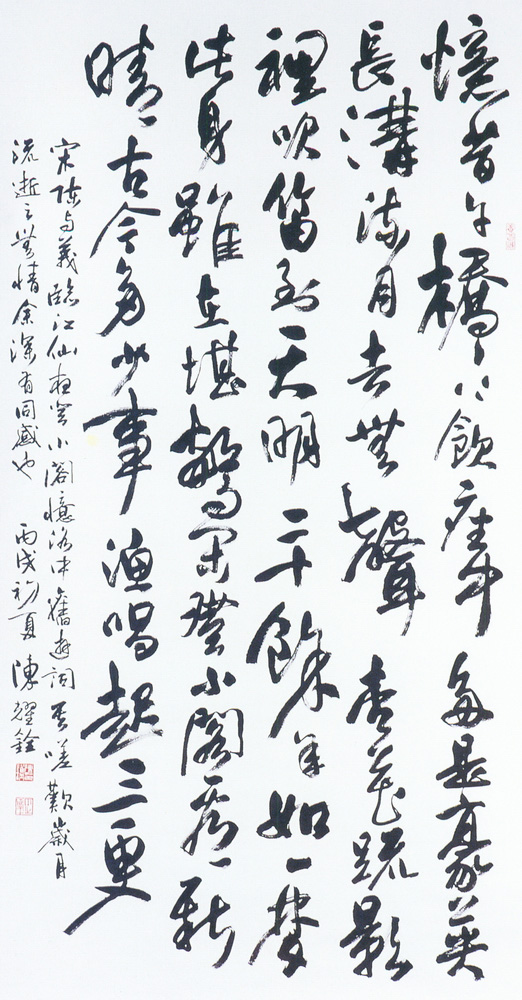 憶昔午橋々上飲座中多是豪英
長溝流月去無聲杏花疏影
裡吹笛到天明二十餘年如一夢
此身雖在堪驚閒登小閣看新
晴古今多少事漁唱起三更
宋陳与義臨江仙夜登小閣憶洛中舊遊詞其嗟歎歲月
流逝之無情余深有同感也 丙戌初夏 陳耀銓